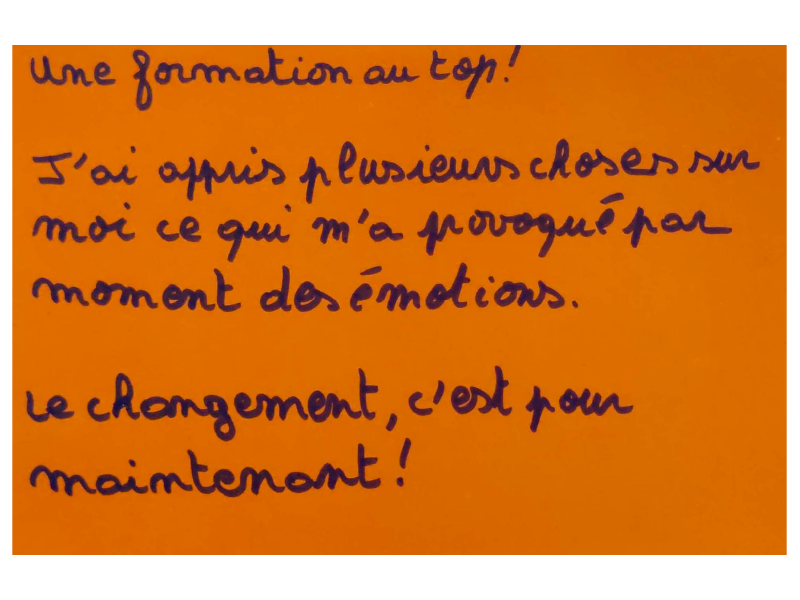 Une formation au top!
J'ai appris plusieurs choses sur
moi ce qui m'a provoqué par
moment des émotions.
Le changement, c'est pour
maintenant!